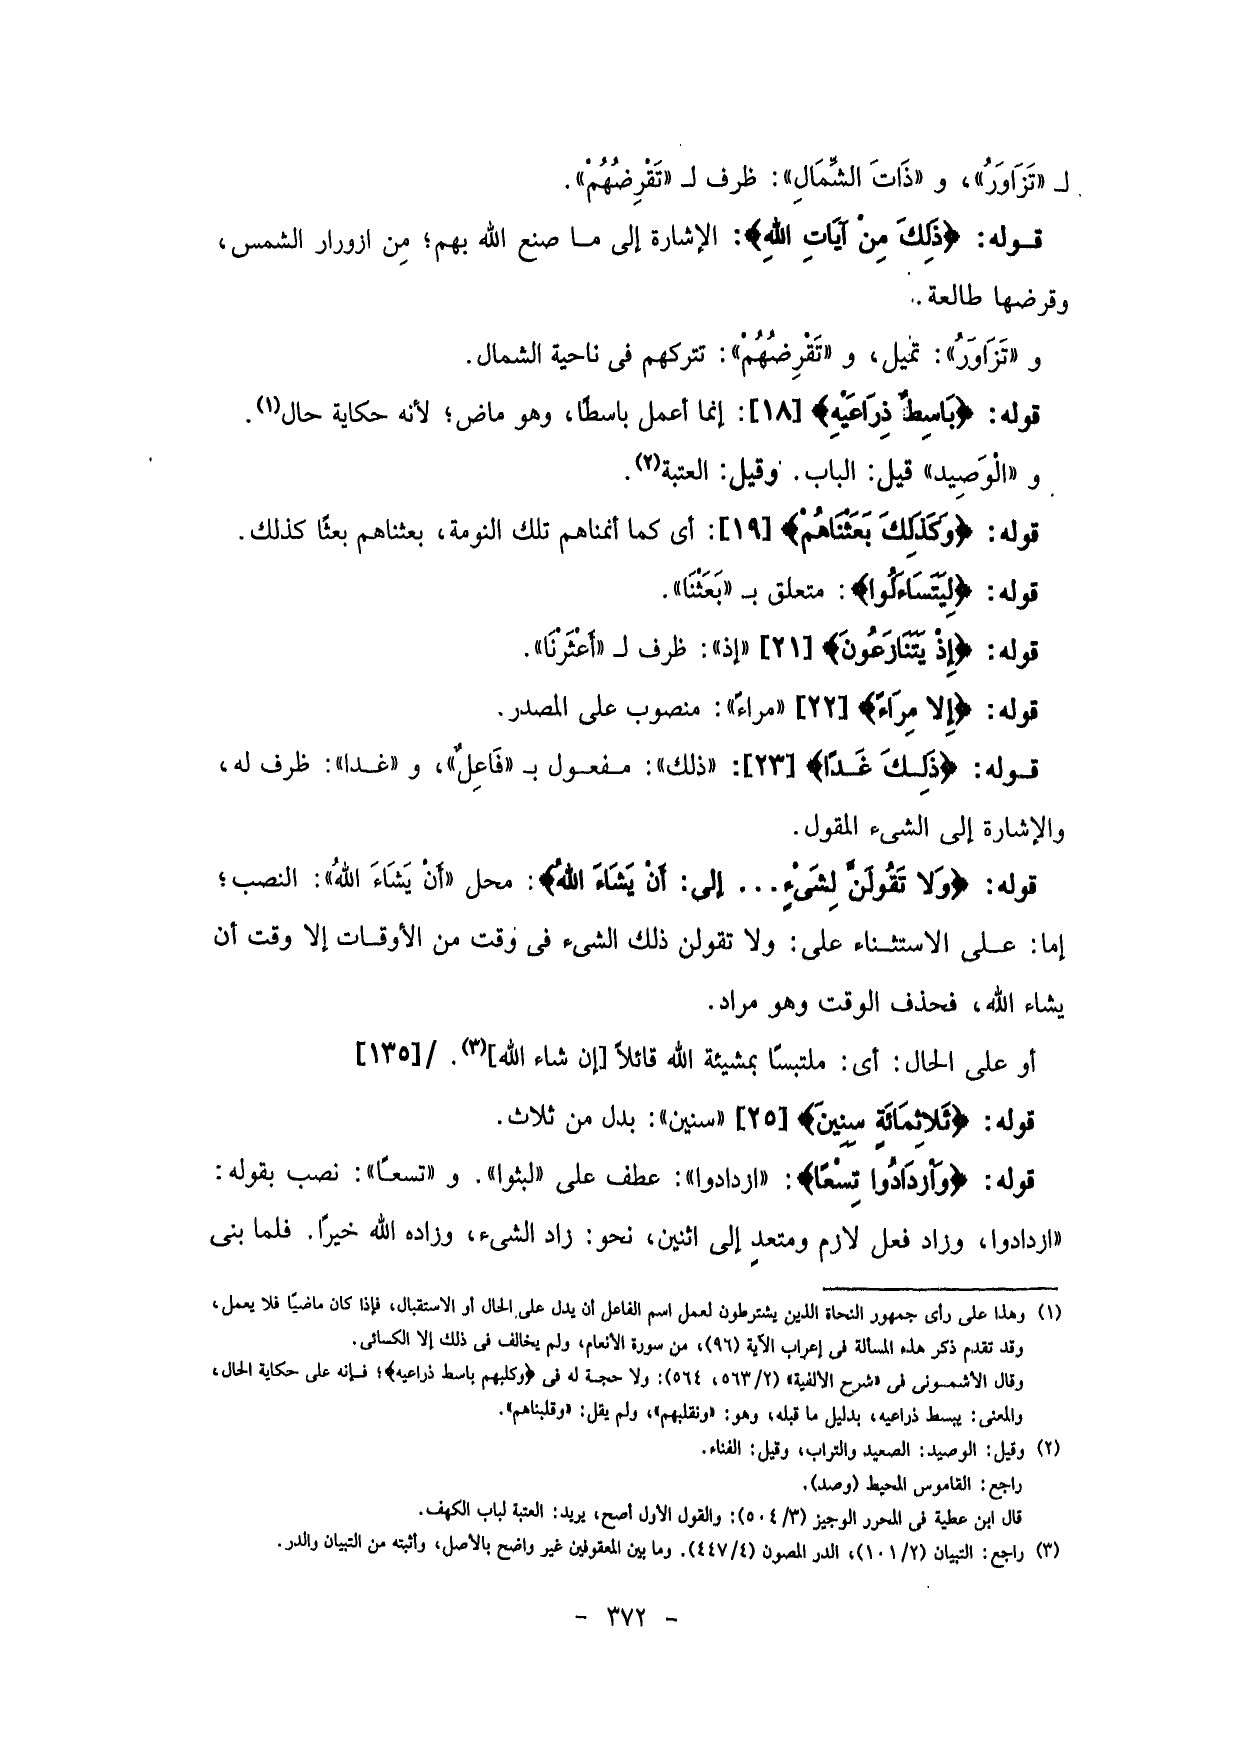 لـ «تَزَاوَرُ»، و «ذَاتَ الشِّمَالِ»: ظرف لـ «تَقْرِضُهُمْ».
قوله: ﴿ذَلِكَ مِنْ آيَاتِ اللهِ﴾: الإشارة إلى ما صنع الله بهم؛ مِن ازورار الشمس،
وقرضها طالعة.
و «تَزَاوَرُ»: تميل، و «تَقْرِضُهُمْ»: تتركهم فى ناحية الشمال.
قوله: ﴿بَاسِطٌ ذِرَاعَيْهِ﴾ [١٨]: إنما أعمل باسطًا، وهو ماض؛ لأنه حكاية حال(١).
و «الْوَصِيد» قيل: الباب. وقيل: العتبة(٢).
قوله: ﴿وَكَذَلِكَ بَعَثْنَاهُمْ﴾ [١٩]: أى كما أنمناهم تلك النومة، بعثناهم بعثًا كذلك.
قوله: ﴿لِيَتَسَاءَلُوا﴾: متعلق بـ «بَعَثْنَا».
قوله: ﴿إِذْ يَتَنَازَعُونَ﴾ [٢١] «إذ»: ظرف لـ «أَعْثَرْنَا».
قوله: ﴿إِلا مِرَاءً﴾ [٢٢] «مراءً»: منصوب على المصدر.
قوله: ﴿ذَلِكَ غَدًا﴾ [٢٣]: «ذلك»: مفعول بـ «فَاعِلٌ»، و «غدا»: ظرف له،
والإشارة إلى الشىء المقول.
قوله: ﴿وَلا تَقُولَنَّ لِشَىْءٍ... إلى: أَنْ يَشَاءَ اللهُ﴾: محل «أَنْ يَشَاءَ اللهُ»: النصب؛
إما: على الاستثناء على: ولا تقولن ذلك الشىء فى وقت من الأوقات إلا وقت أن
يشاء الله، فحذف الوقت وهو مراد.
أو على الحال: أى: ملتبسًا بمشيئة الله قائلاً [إن شاء الله](٣). /[١٣٥]
قوله: ﴿ثَلاثِمَائَةٍ سِنِينَ﴾ [٢٥] «سنين»: بدل من ثلاث.
قوله: ﴿وَازْدَادُوا تِسْعًا﴾: «ازدادوا»: عطف على «لبثوا». و «تسعًا»: نصب بقوله:
«ازدادوا، وزاد فعل لازم ومتعدٍ إلى اثنين، نحو: زاد الشىء، وزاده الله خيرًا. فلما بنى
(١) وهذا على رأى جمهور النحاة الذين يشترطون لعمل اسم الفاعل أن يدل على الحال أو الاستقبال، فإذا كان ماضيًا فلا يعمل،
وقد تقدم ذكر هذه المسألة فى إعراب الآية (٩٦)، من سورة الأنعام، ولم يخالف فى ذلك إلا الكسائى.
وقال الأشمونى فى «شرح الألفية» (٥٦٣/٢، ٥٦٤): ولا حجة له فى ﴿وكلبهم باسط ذراعيه﴾؛ فإنه على حكاية الحال،
والمعنى: يبسط ذراعيه، بدليل ما قبله، وهو: «ونقلبهم»، ولم يقل: «وقلبناهم».
(٢) وقيل: الوصيد: الصعيد والتراب، وقيل: الفناء.
راجع: القاموس المحيط (وصد).
قال ابن عطية فى المحرر الوجيز (٥٠٤/٣): والقول الأول أصح، يريد: العتبة لباب الكهف.
(٣) راجع: التبيان (١٠١/٢)، الدر المصون (٤٤٧/٤). وما بين المعقوفين غير واضح بالأصل، وأثبته من التبيان والدر.
- ٣٧٢ -